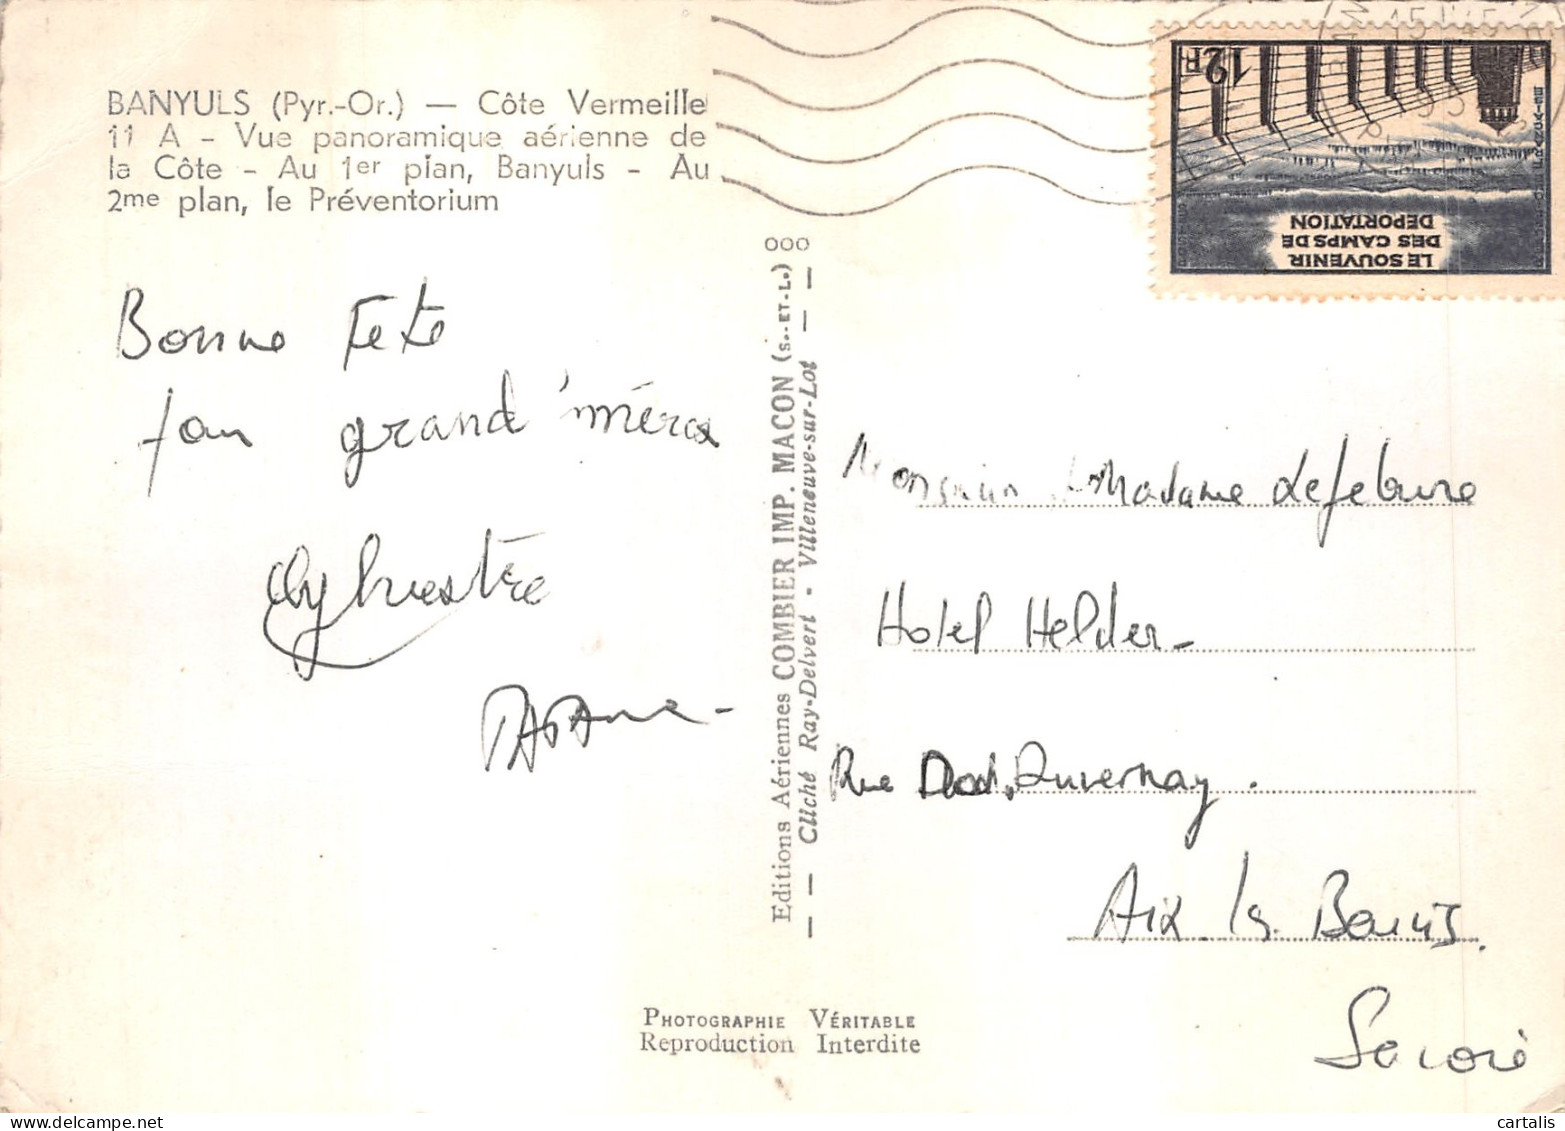 BANYULS (Pyr.-Or.) — Côte Vermeille
11 A - Vue panoramique aérienne de
la Côte - Au 1er plan, Banyuls - Au
2me plan, le Préventorium
Bonne Fete
grand'mère
Sylvestre
Editions Aériennes COMBIER IMP. MACON (S.-ET-L.) 000
— — Cliché Ray-Delvert - Villeneuve-sur-Lot — —
12F
LE SOUVENIR
DES CAMPS DE
DEPORTATION
Monsieur Madame Lefebure
Hotel Helder-
Rue Duvernay.
Aix les Bains.
Savoie
PHOTOGRAPHIE VÉRITABLE
Reproduction Interdite
cartalis